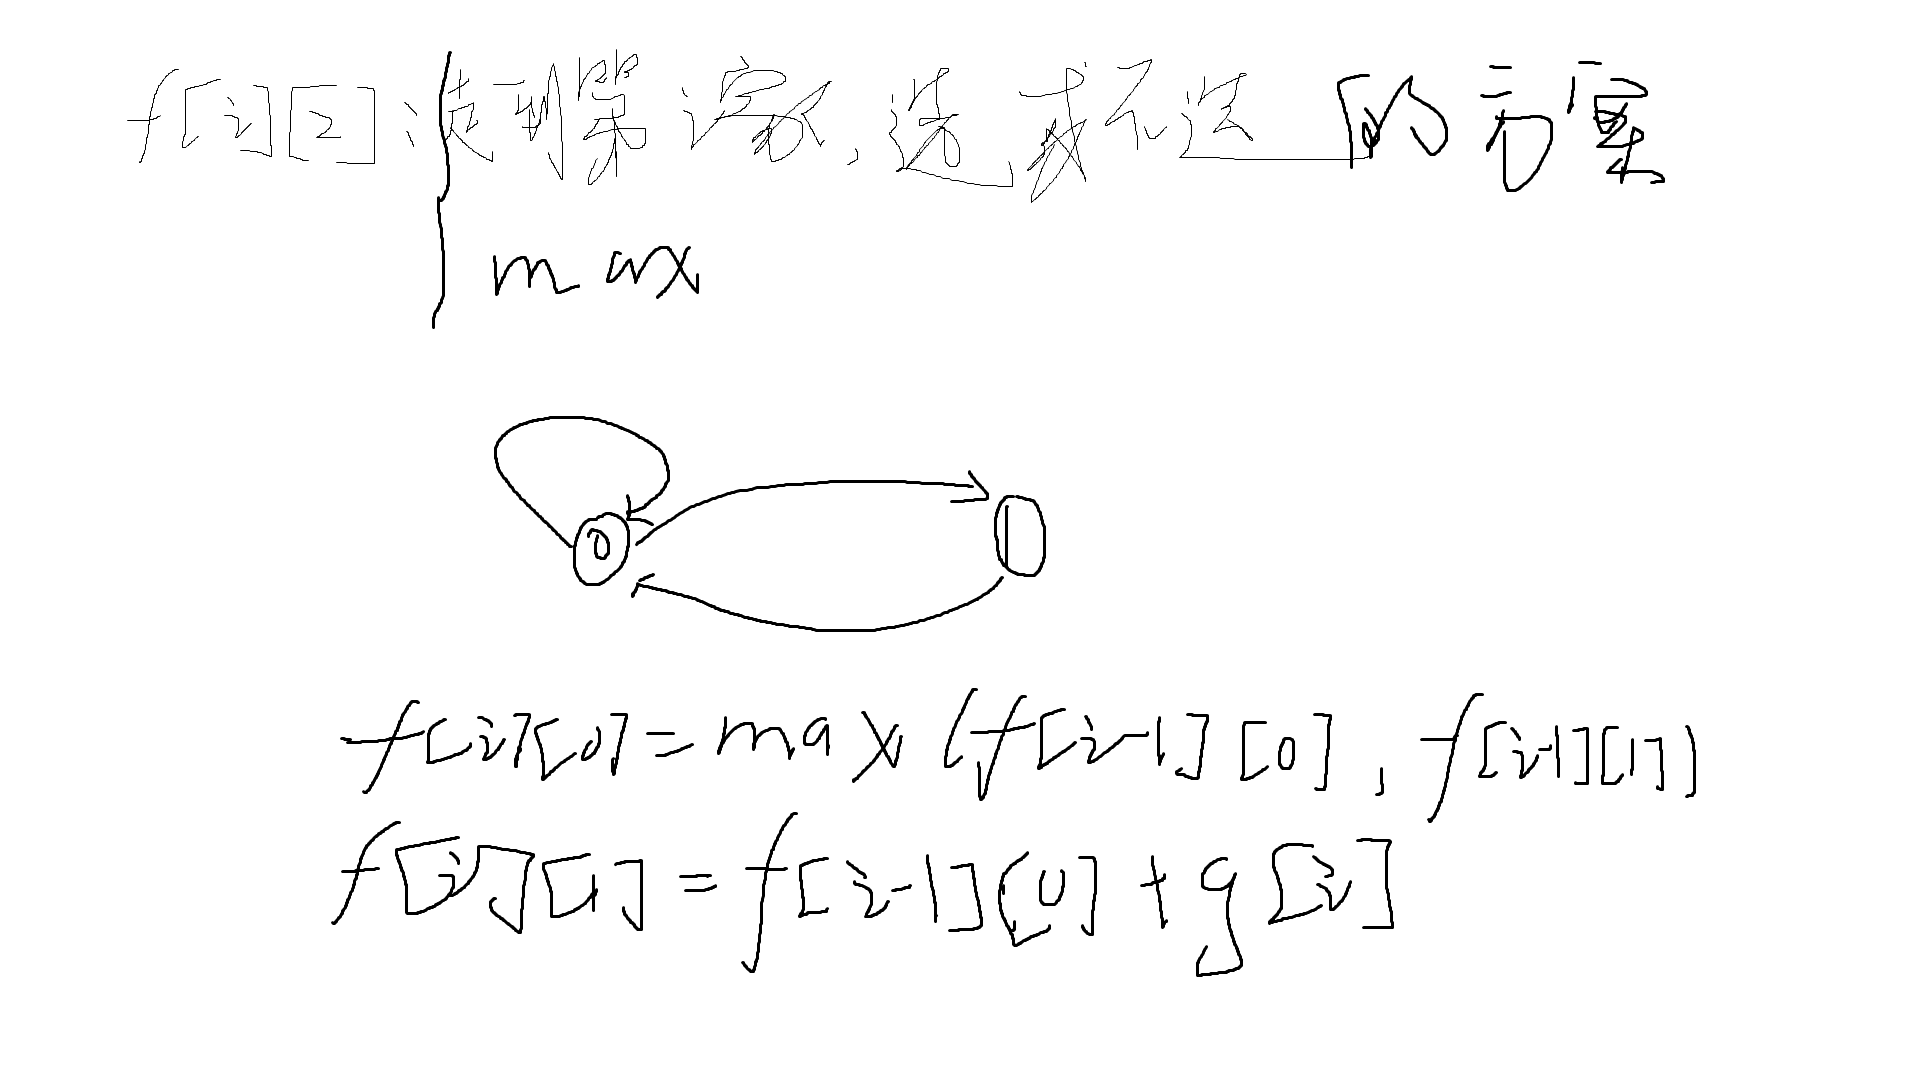 f[i][2]:走到第i家,选或不选的方案
max
0
1
f[i][0]=max(f[i-1][0],f[i-1][1])
f[i][1]=f[i-1][0]+g[i]